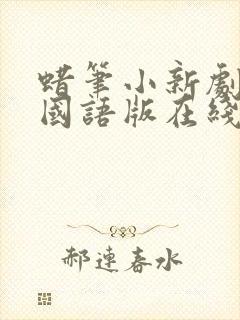 蜡筆小新劇
國語版在綫
郝連春水